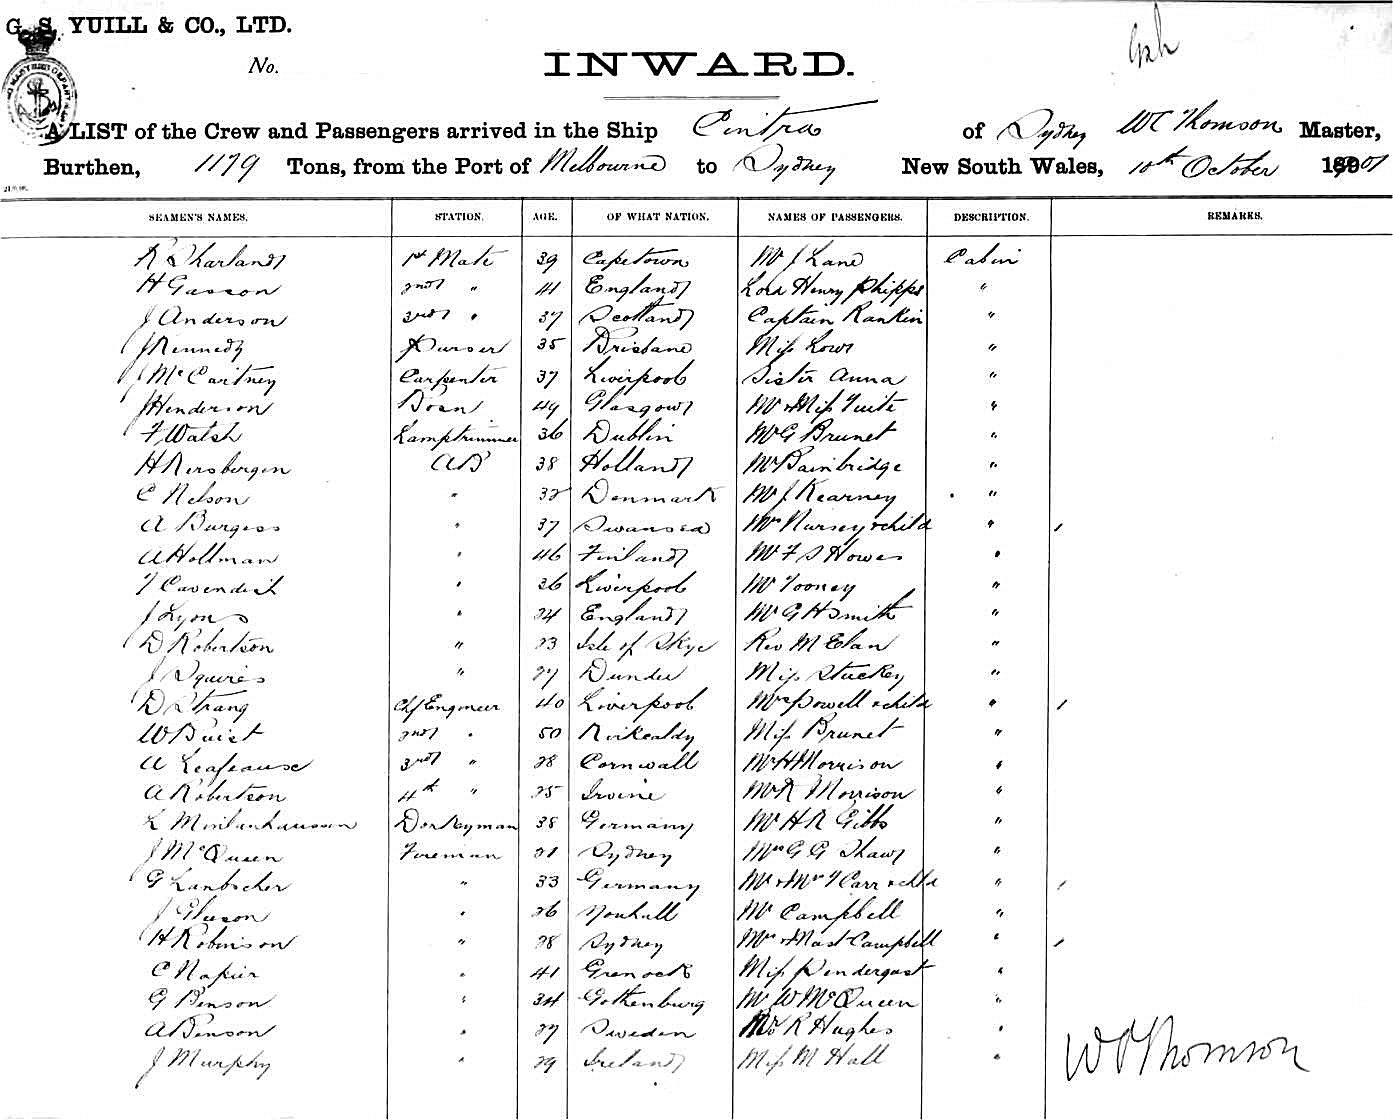 G. S. YUILL & CO., LTD.
No.
INWARD.
A LIST of the Crew and Passengers arrived in the Ship Cintra of Sydney W C Thomson Master,
Burthen, 1179 Tons, from the Port of Melbourne to Sydney New South Wales, 10th October 1901
SEAMEN'S NAMES. STATION. AGE. OF WHAT NATION. NAMES OF PASSENGERS. DESCRIPTION. REMARKS.
R Sharland 1st Mate 39 Capetown Mr J Lane Cabin
H Gasson 2nd " 41 England Lord Henry Phipps "
J Anderson 3rd " 37 Scotland Captain Rankin "
J Kennedy Purser 35 Brisbane Miss Lowe "
J McCartney Carpenter 37 Liverpool Sister Anna "
J Henderson Bosn 49 Glasgow Mr & Miss Tuite "
F Walsh Lamptrimmer 36 Dublin Mr G Brunet "
H Kersbergen AB 38 Holland Mr Bainbridge "
C Nelson " 32 Denmark Mr J Kearney "
A Burgess " 37 Swansea Mrs Nursey & child "
A Hollman " 46 Finland Mr F S Howes "
T Cavendish " 26 Liverpool Mr Tooney "
J Lyons " 24 England Mr G H Smith "
D Robertson " 23 Isle of Skye Rev M Elan "
J Squires " 27 Dundee Miss Stuckey "
D Strang Chf Engineer 40 Liverpool Mrs Powell & child "
W Buist 2nd " 50 Kirkcaldy Miss Brunet "
A 3rd " 28 Cornwall Mr H Morrison "
A Robertson 4th " 25 Irvine Mr R Morrison "
L Donkeyman 38 Germany Mr H R Gibbs "
J McQueen Foreman 21 Sydney Mrs G G Shaw "
G Lanbscher " 33 Germany Mr & Mrs T Carr & chld "
J Gleeson " 26 Mr Campbell "
H Robinson " 28 Sydney Mrs & Mast Campbell "
C Napier " 41 Grenock Miss Pendergast "
G Benson " 34 Gothenburg Mr W McQueen "
A Benson " 27 Sweden R Hughes "
J Murphy " 29 Ireland Miss M Hall "
W C Thomson